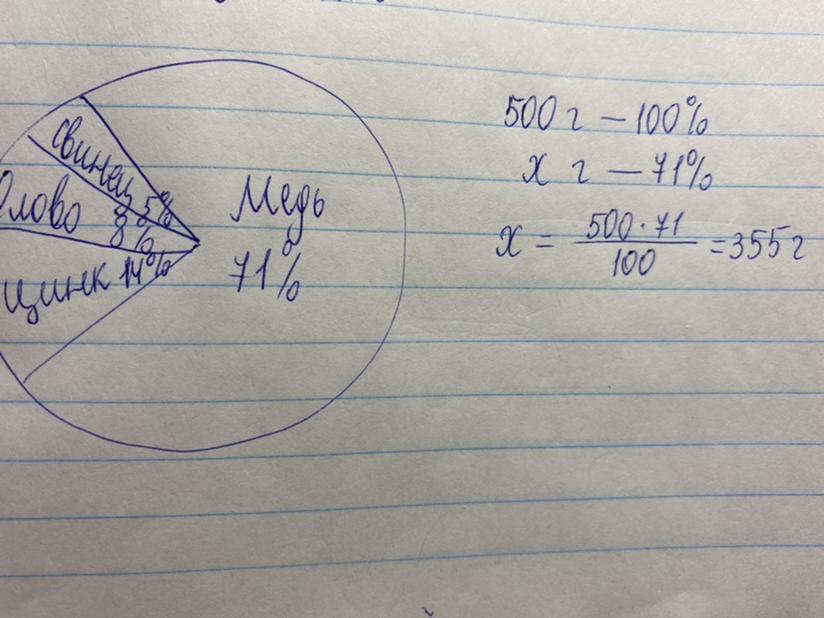 свинец 5%
Олово 8%
цинк 14%
Медь
71%
500 г – 100%
х г – 71%
х = 500·71 / 100 = 355 г